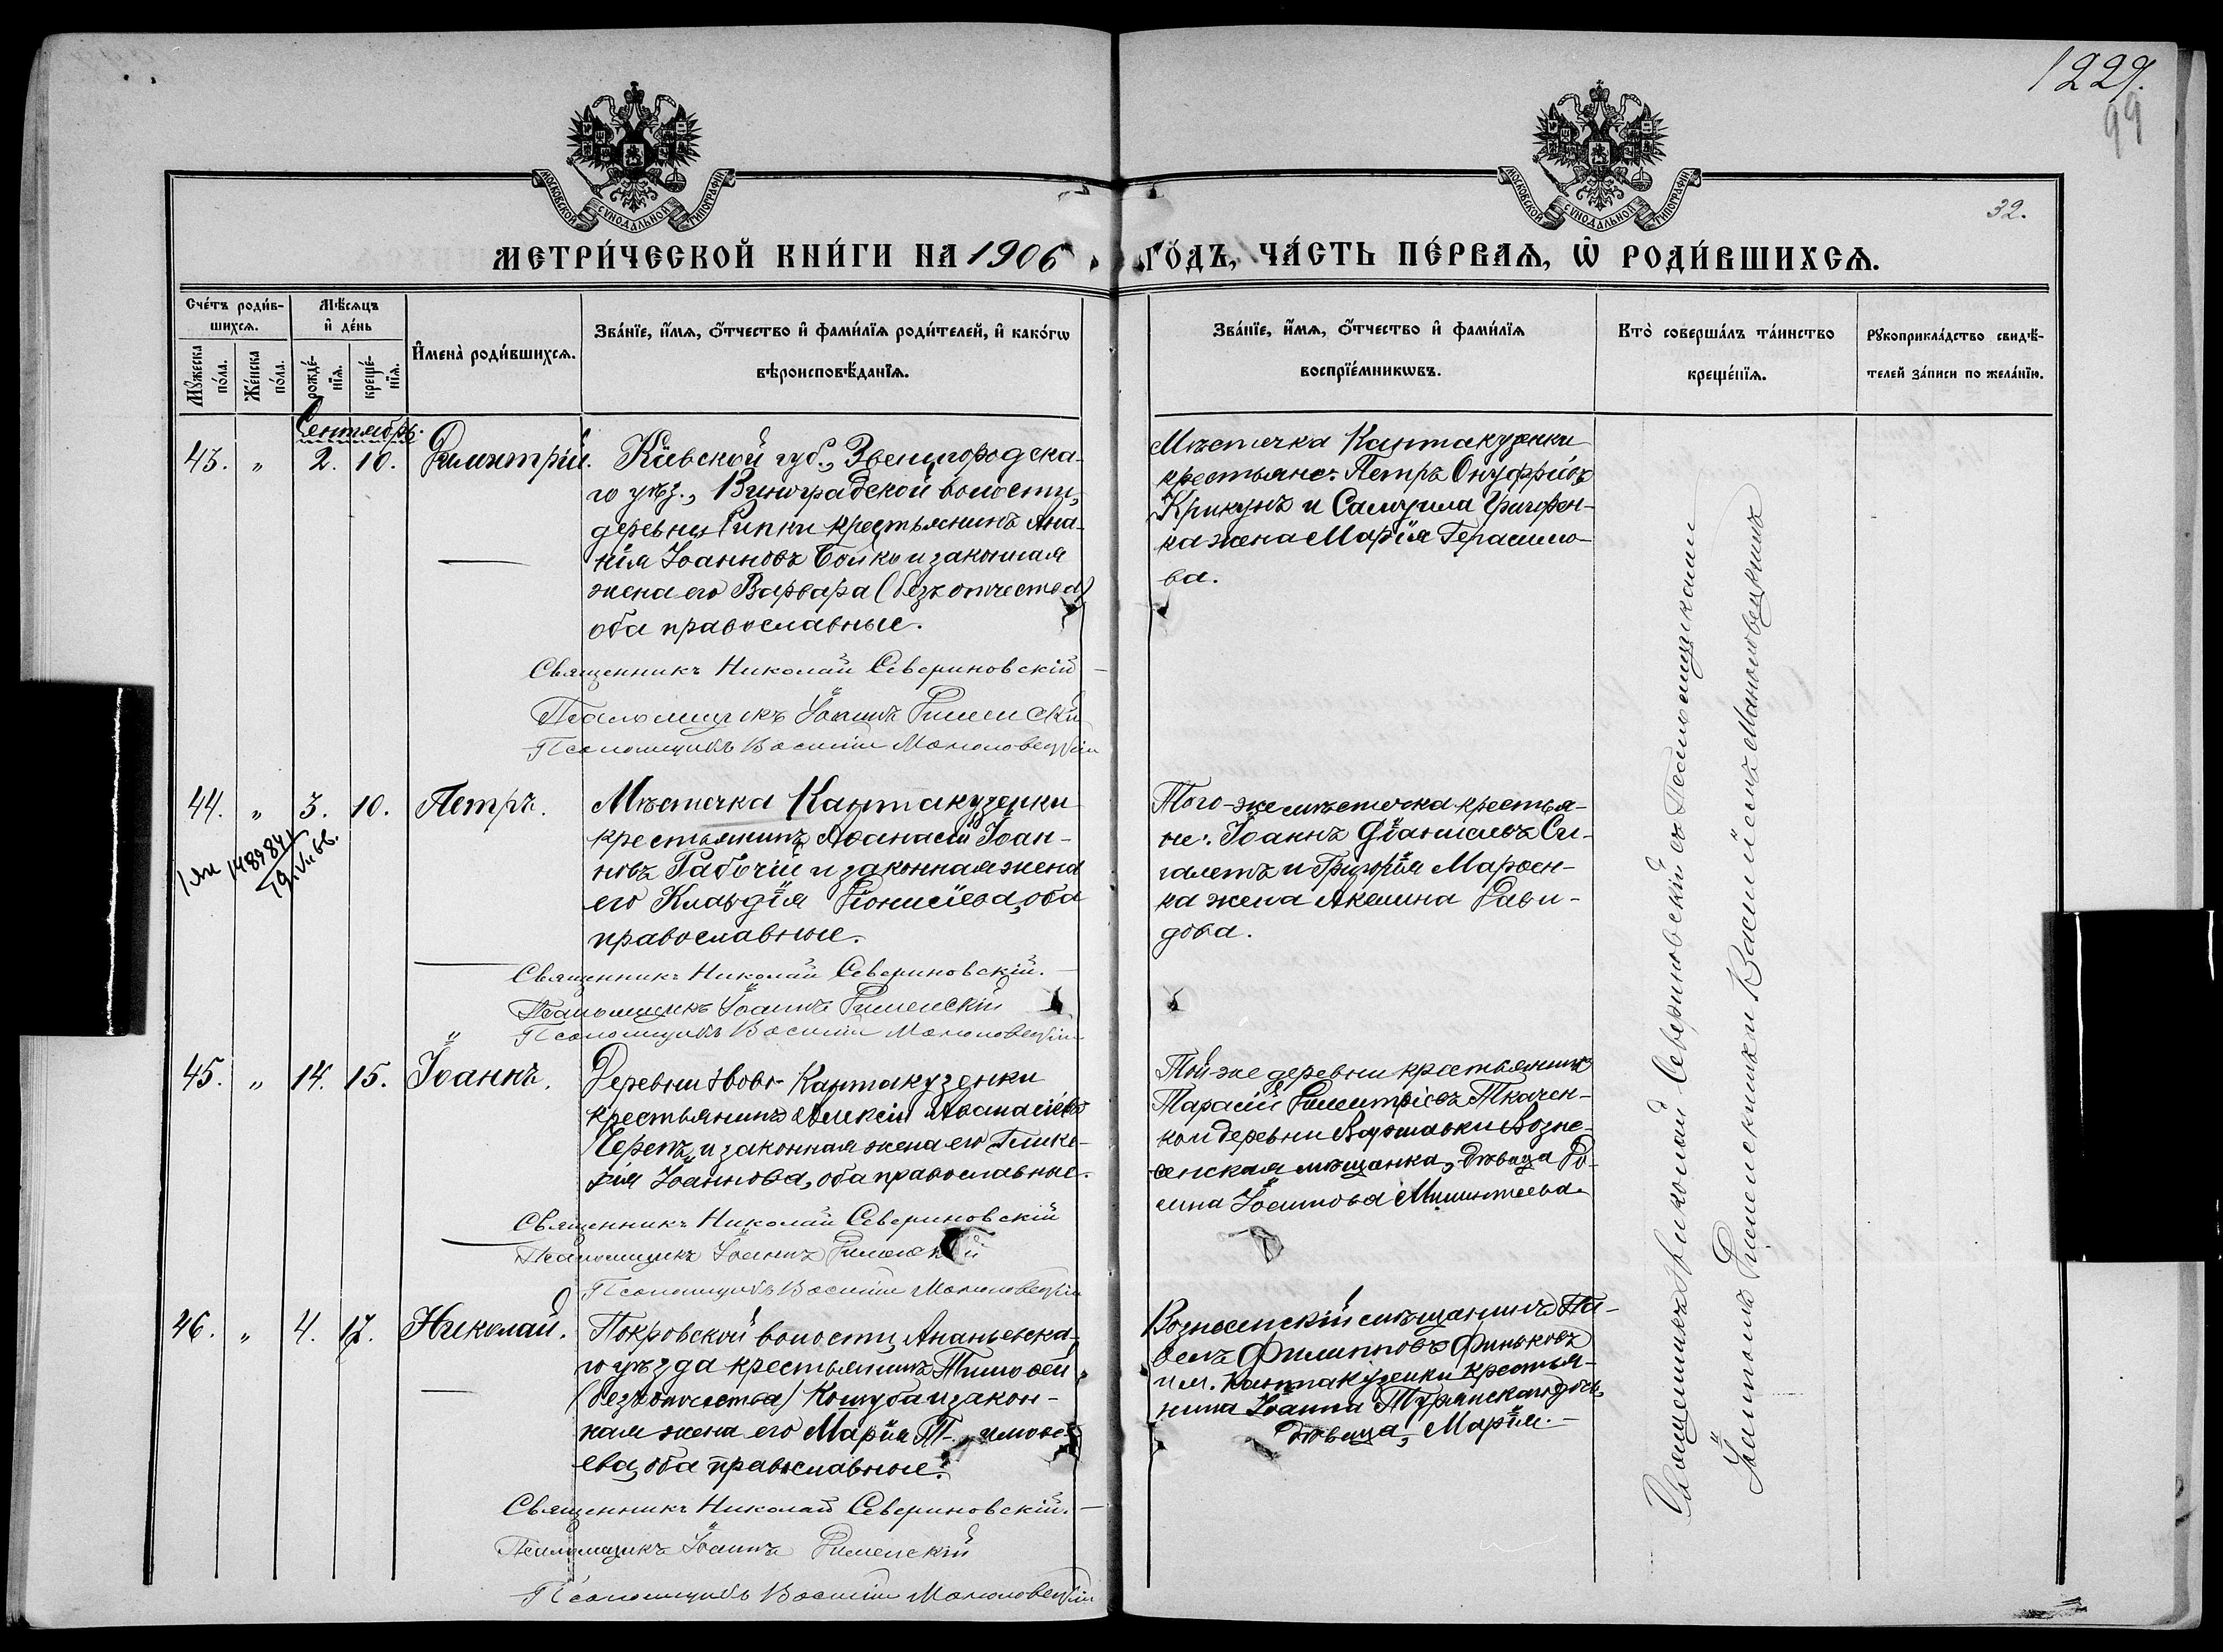 1229.
99
32.
МОСКОВСКОЙ СѴНОДАЛЬНОЙ ТИПОГРАФІИ
МОСКОВСКОЙ СѴНОДАЛЬНОЙ ТИПОГРАФІИ
МЕТРИ́ЧЕСКОЙ КНИ́ГИ НА 1906 ГО́ДЪ, ЧА́СТЬ ПЕ́РВАЯ, Ѡ҆ РОДИ́ВШИХСЯ.
Сче́тъ роди́в-
шихся.
Мѣ́сяцъ
и҆ де́нь
Мꙋ́жеска
по́ла.
Же́нска
по́ла.
рожде́-
нїя.
креще́-
нїя.
И҆мена̀ роди́вшихся.
Зва́нїе, и҆́мя, ѻ҆́тчество и҆ фами́лїя роди́телей, и҆ како́гѡ
вѣроисповѣ́данїя.
Зва́нїе, и҆́мя, ѻ҆́тчество и҆ фами́лїя
воспрїе́мникѡвъ.
Кто̀ соверша́лъ та́инство
креще́нїя.
Рꙋкоприкла́дство свидѣ́-
телей за́писи по жела́нїю.
Сентябрь.
43. " 2. 10. Димитрій. Кіевской губ., Звенигородска-
го уѣз., Виноградской волости,
деревни Рипки крестьянинъ Ана-
нія Іоанновъ Бойко и законная
жена его Варвара (безъ отчества)
оба православные.
Священникъ Николай Севериновскій
Псаломщикъ Іоаннъ
Псаломщикъ Василій
Мѣстечка Кантакузенки
крестьяне: Петръ Онуфріевъ
Крикунъ и Самуила Григорен-
ка жена Марія Герасимо-
ва.
44. " 3. 10. Петръ. Мѣстечка Кантакузенки
крестьянинъ Аѳанасій Іоан-
новъ Рабочій и законная жена
его Клавдія Діонисіева, оба
православные.
Священникъ Николай Севериновскій.
Псаломщикъ Іоаннъ
Псаломщикъ Василій
Того-же мѣстечка крестья-
не: Іоаннъ Даніиловъ Си-
галетъ и Григорія Марѳен-
ка жена Акелина Дави-
дова.
45. " 14. 15. Іоаннъ. Деревни Ново-Кантакузенки
крестьянинъ Алексій Аѳанасіевъ
Черетъ и законная жена его Глике-
рія Іоаннова, оба православные.
Священникъ Николай Севериновскій
Псаломщикъ Іоаннъ
Псаломщикъ Василій
Той-же деревни крестьянинъ
Тарасій Димитріевъ Ткачен-
ко и деревни Варшавки Возне-
сенская мѣщанка, дѣвица До-
мна Іоаннова
46. " 4. 17. Николай. Покровской волости, Ананьевска-
го уѣзда крестьянинъ Тимоѳей
(безъ отчества) Кошуба и закон-
ная жена его Марія Тимоѳе-
ева, оба православные.
Священникъ Николай Севериновскій.
Псаломщикъ Іоаннъ
Псаломщикъ Василій
Вознесенскій мѣщанинъ Па-
велъ Филипповъ Финьковъ
и м. Кантакузенки крестья-
нина Іоанна Турянскаго дочь
дѣвица, Марія.
Священникъ Николай Севериновскій съ Псаломщиками
Іоанномъ и Василіемъ